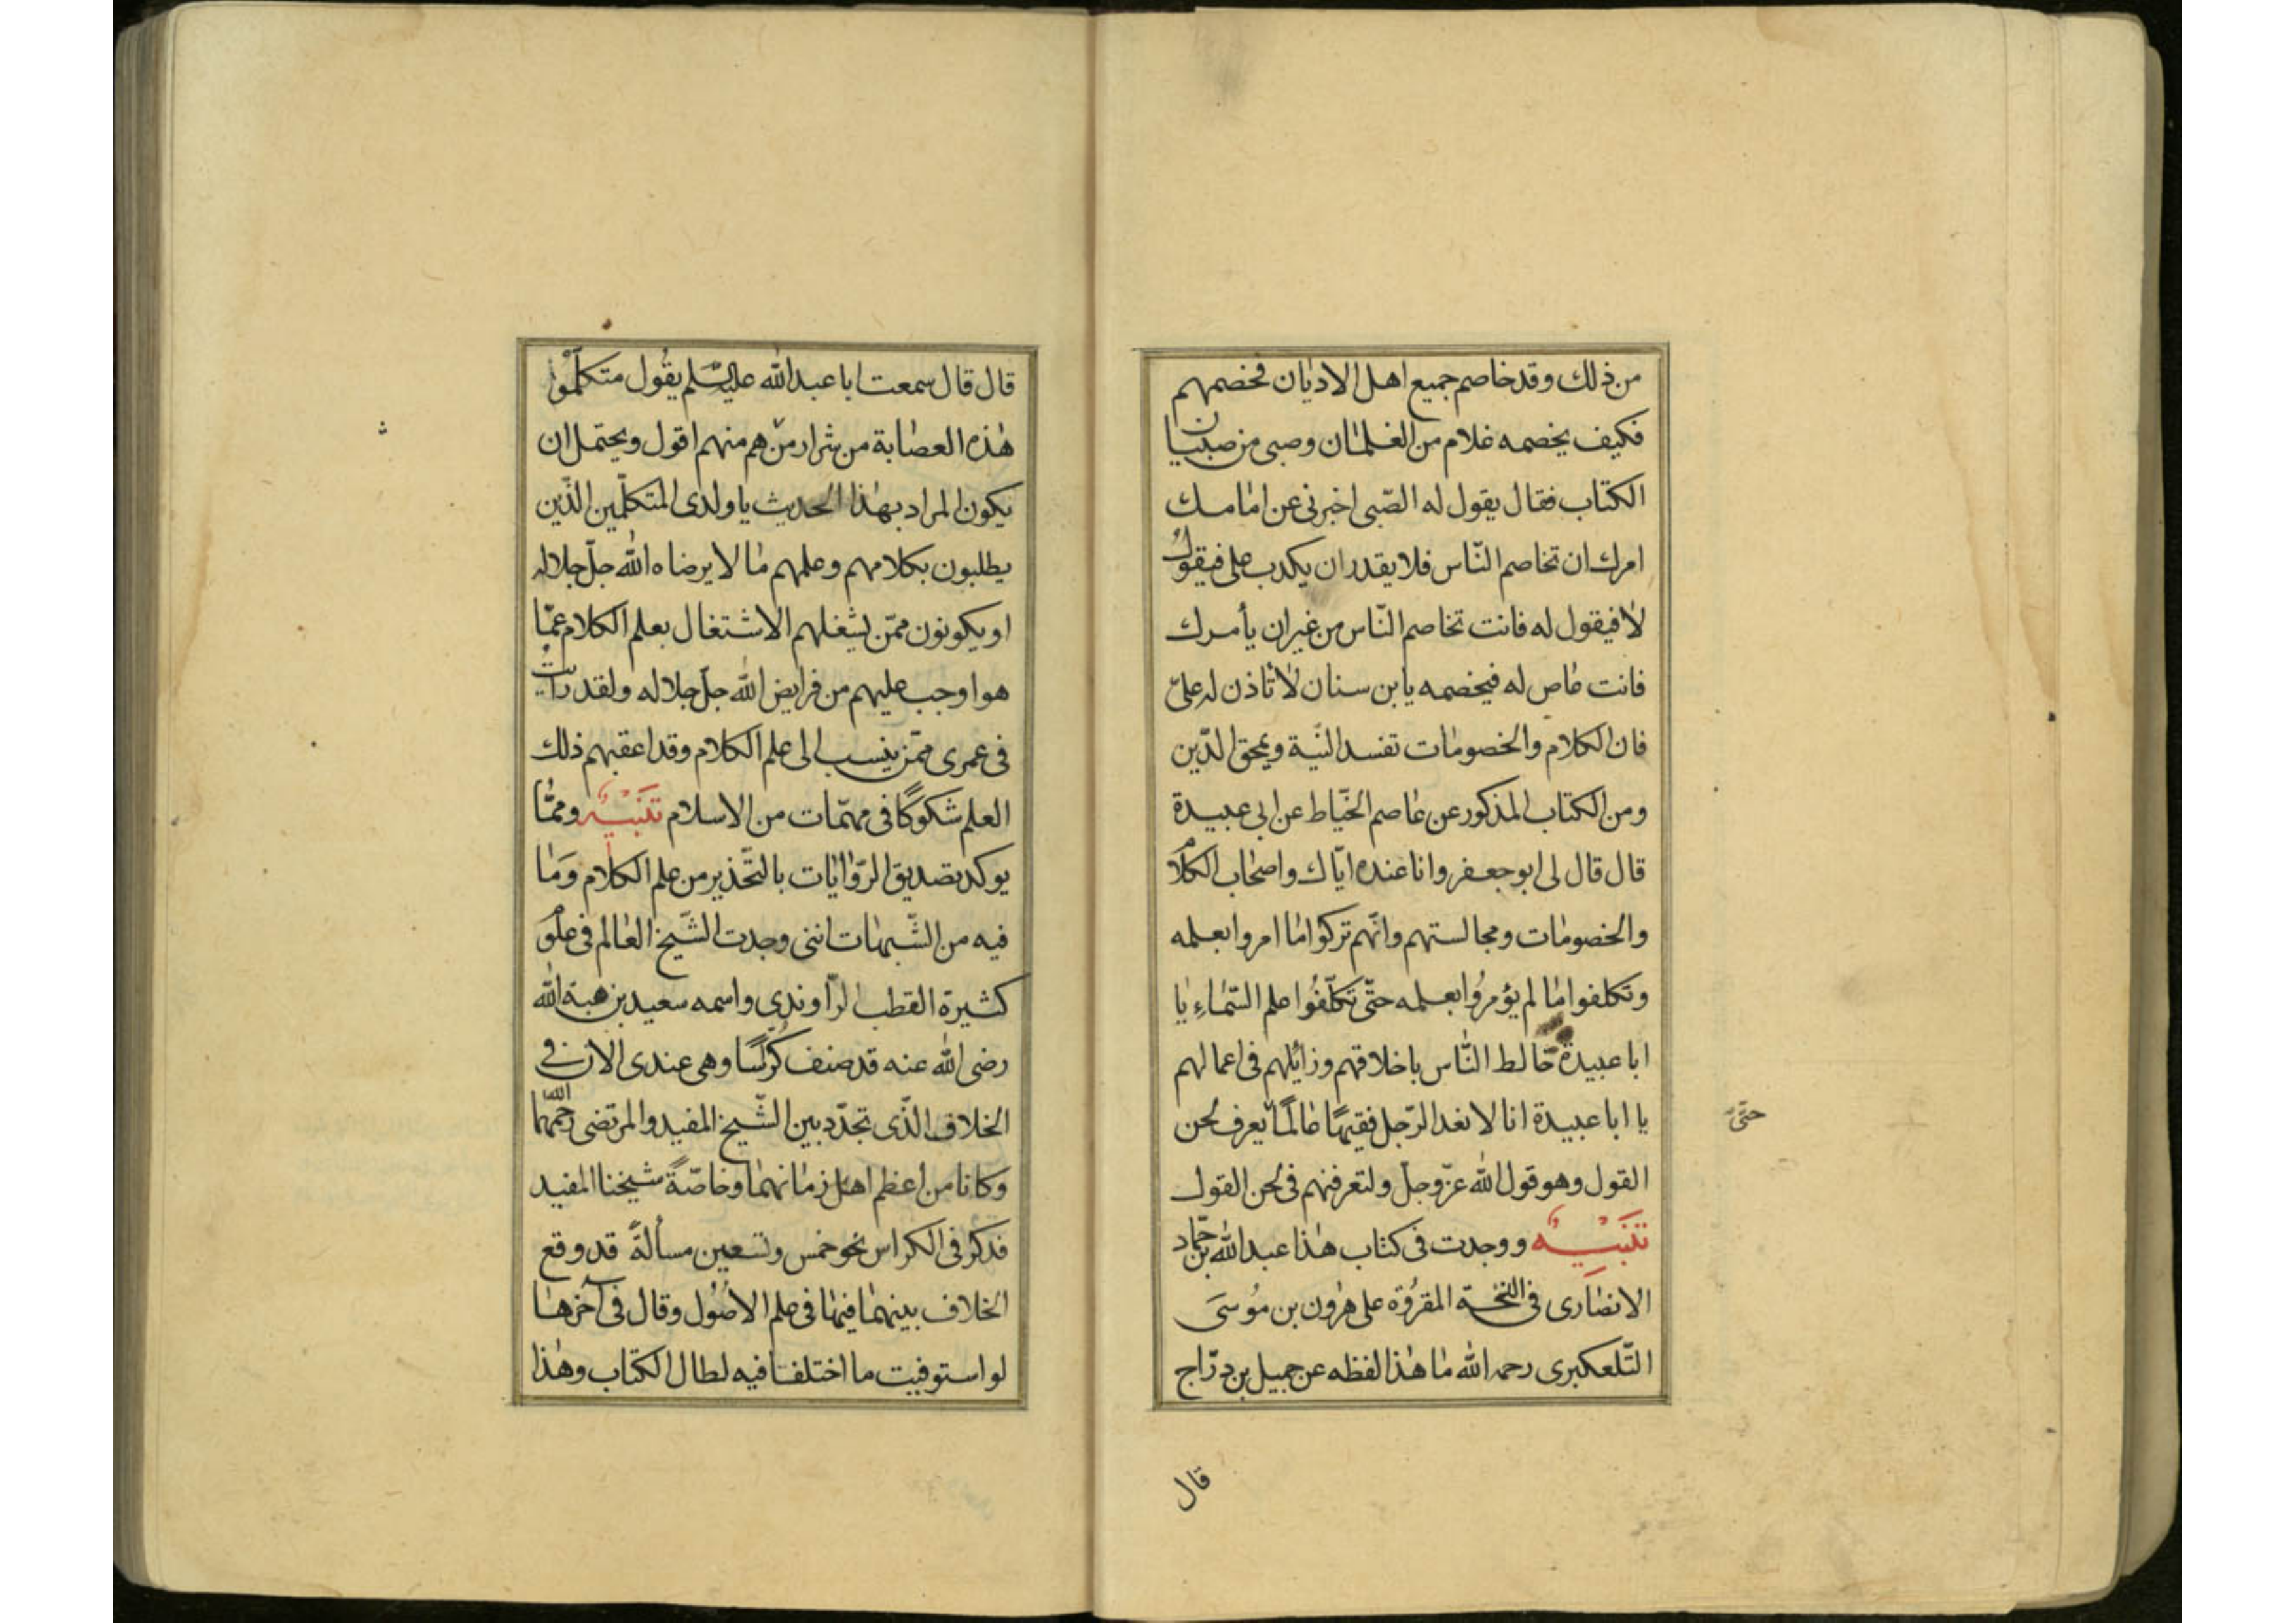 من ذلك وقد خاصم جميع اهل الاديان فخصمهم
فكيف يخصمه غلام من الغلمان وصبى من صبيان
الكتاب فقال يقول له الصّبى اخبرنى عن امامك
امرك ان تخاصم النّاس فلا يقدر ان يكذب على فيقول
لا فيقول له فانت تخاصم النّاس من غير ان يأمرك
فانت عاص له فيخصمه يا بن سنان لا تاذن له علىّ
فان الكلام والخصومات تفسد النيّة وتمحق الدّين
ومن الكتاب المذكور عن عاصم الخيّاط عن ابى عبيدة
قال قال لى ابو جعفر وانا عنده ايّاك واصحاب الكلام
والخصومات ومجالستهم وانّهم تركوا ما امروا بعلمه
وتكلفوا ما لم يؤمروا بعلمه حتّى تكلّفوا علم السّماء يا
ابا عبيدة خالط النّاس باخلاقهم وزائلهم فى اعمالهم
يا ابا عبيدة انا لا نعد الرّجل فقيهًا عالمًا يعرف لحن
حتّى
القول وهو قول الله عزّ وجلّ ولتعرفنهم فى لحن القول
تَنْبيهٌ ووجدت فى كتاب هذا عبد الله بن حمّاد
الانصارى فى النسخة المقرؤة على هرون بن مُوسَى
التّلعكبرى رحمه الله ما هذا لفظه عن جميل بن درّاج
قال
قال قال سمعت ابا عبد الله عليه السّلم يقُول متكلّموا
هذه العصابة من شرار من هم منهم اقول ويحتمل ان
يكون المراد بهذا الحديث يا ولدى المتكلّمين الذّين
يطلبون بكلامهم وعلمهم ما لا يرضاه الله جلّ جلاله
او يكونون ممّن يشغلهم الاشتغال بعلم الكلام عمّا
هو اوجب عليهم من فرايض الله جلّ جلاله ولقد رايت
فى عمرى ممّن ينسب الى علم الكلام وقد اعقبهم ذلك
العلم شكوكًا فى مهمّات من الاسلام تَنْبيهٌ وممّا
يوكد تصديق الرّوايات بالتّحذير من علم الكلام وَما
فيه من الشّبهات اننى وجدت الشّيخ العالم فى علوم
كثيرة القطب الرّاوندى واسمه سعيد بن هبة الله
رضى الله عنه قد صنف كرّاسًا وهى عندى الان فى
الخلاف الذّى تجدّد بين الشّيخ المفيد والمرتضى رحمهما الله
وكانا من اعظم اهل زمانهما وخاصّةً شيخنا المفيد
فذكر فى الكراس نحو خمس وتسعين مسألةً قد وقع
الخلاف بينهما فيها فى علم الاصُول وقال فى آخرها
لو استوفيت ما اختلفا فيه لطال الكتاب وهذا